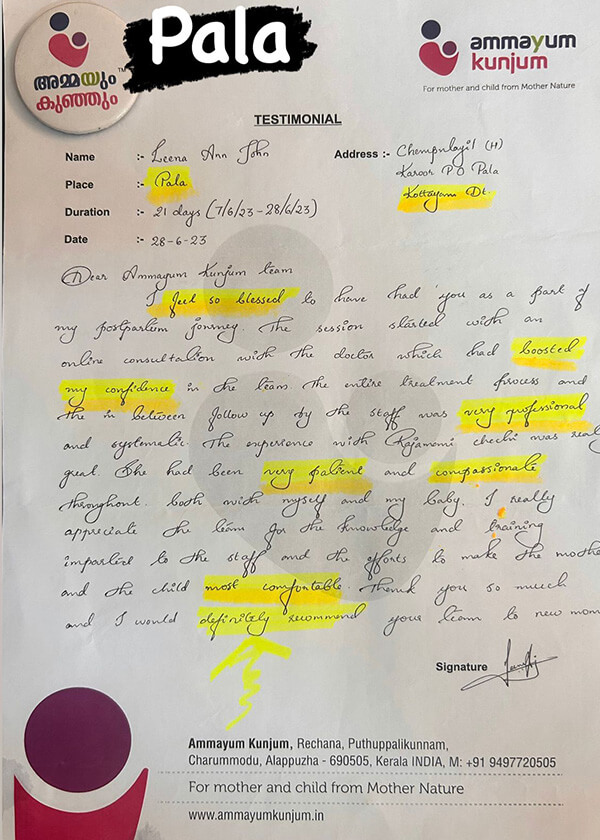 Pala
അമ്മയും
കുഞ്ഞും
TM
ammayum
kunjum
For mother and child from Mother Nature
TESTIMONIAL
Name :- Leena Ann John
Address :- Chempulayil (H)
Karoor P O Pala
Kottayam Dt.
Place :- Pala
Duration :- 21 days (7/6/23-28/6/23)
Date :- 28-6-23
Dear Ammayum Kunjum team
I feel so blessed to have had you as a part of
my postpartum journey. The session started with an
online consultation with the doctor which had boosted
my confidence in the team. The entire treatment process and
the in between follow up by the staff was very professional
and systematic. The experience with Rajamomi chechi was real
great. She had been very patient and compassionate
throughout. both with myself and my baby. I really
appreciate the team for the knowledge and training
imparted to the staff and the efforts to make the mothe
and the child most comfortable. Thank you so much
and I would definitely recommend your team to new mom
Signature
Ammayum Kunjum, Rechana, Puthuppalikunnam,
Charummodu, Alappuzha - 690505, Kerala INDIA, M: +91 9497720505
For mother and child from Mother Nature
www.ammayumkunjum.in